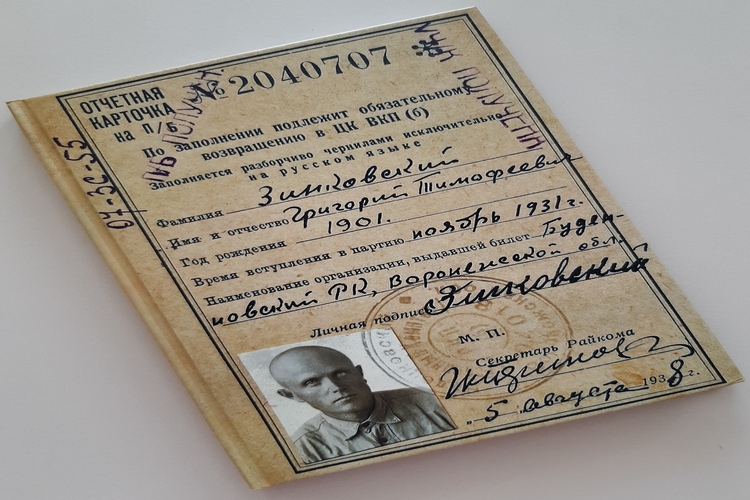 ОТЧЕТНАЯ
КАРТОЧКА
на п/б
№ 2040707
По заполнении подлежит обязательному
возвращению в ЦК ВКП (б)
Заполняется разборчиво чернилами исключительно
на русском языке
Фамилия Зинковский
Имя и отчество Григорий Тимофеевич
Год рождения 1901.
Время вступления в партию ноябрь 1931 г.
Наименование организации, выдавшей билет Буден-
новский РК, Воронежской обл.
Личная подпись Зинковский
М. П.
Секретарь Райкома
„5„ августа 1938 г.
07-30-55